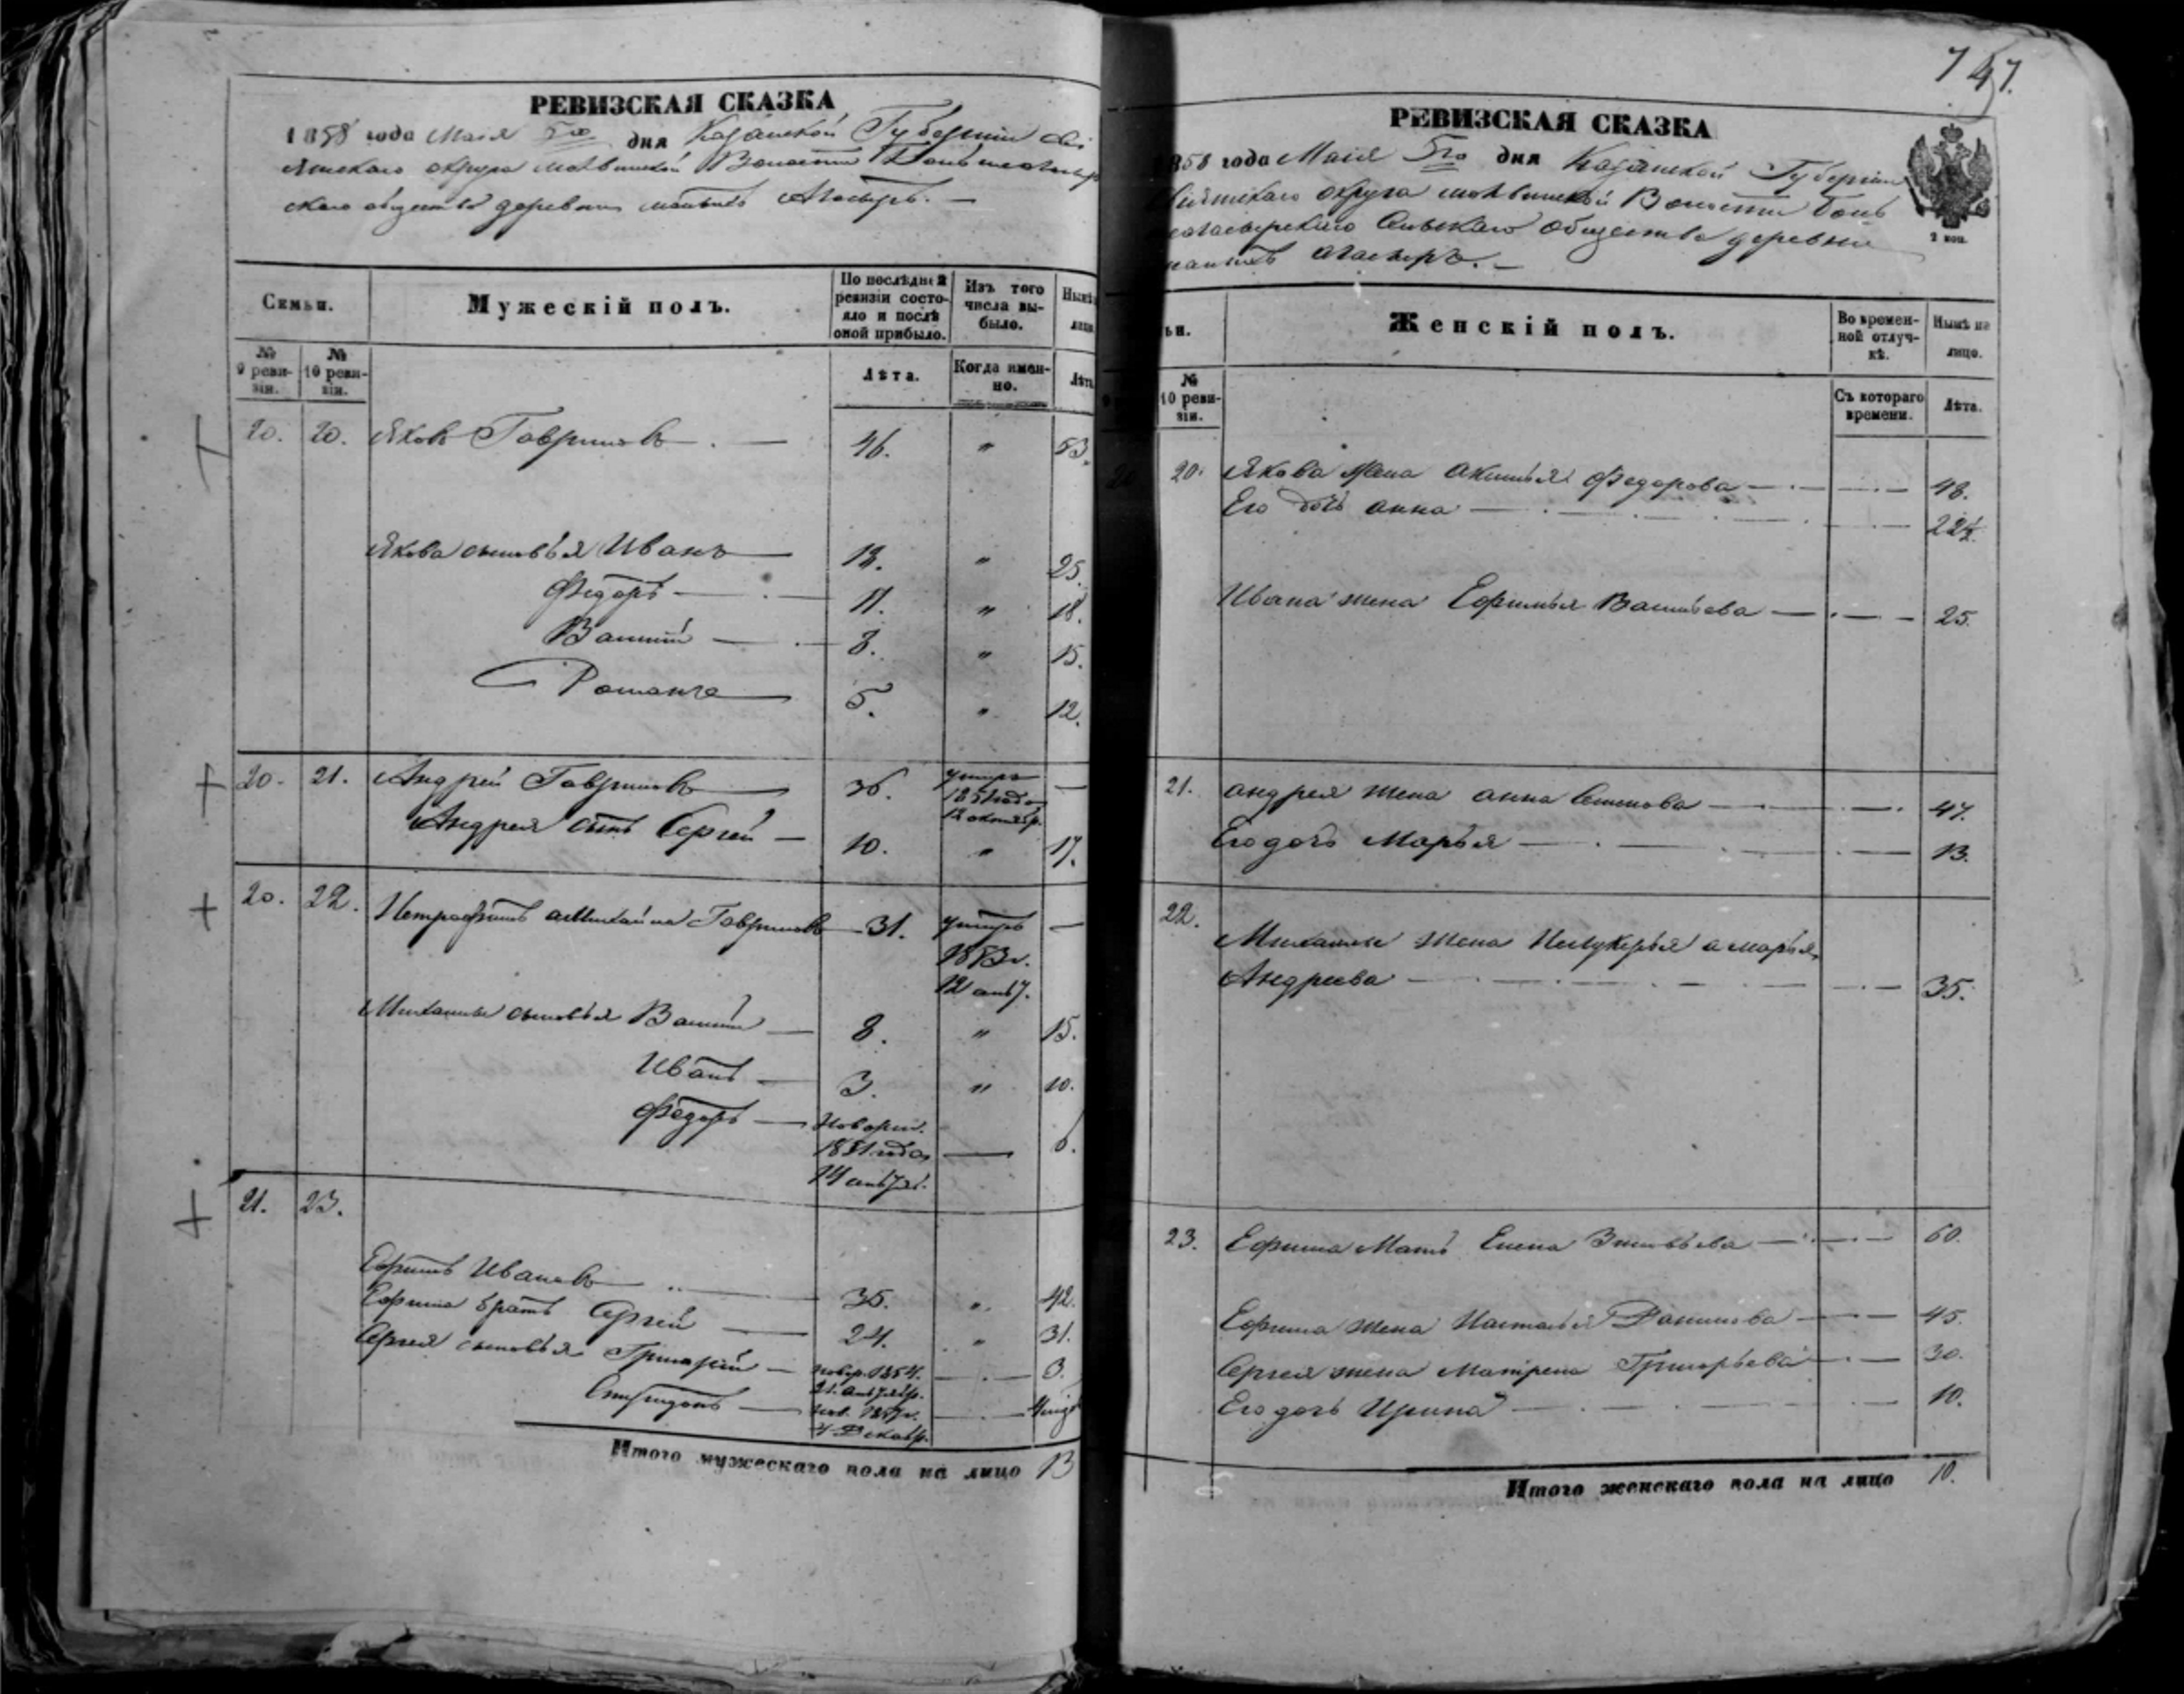 747.
РЕВИЗСКАЯ СКАЗКА
1858 года Маія 5го дня Казанской Губерніи
округа Волости
общества деревни Малыхъ
Семьи.
Мужескій полъ.
По послѣдней ревизіи состояло и послѣ оной прибыло.
Изъ того числа выбыло.
Нынѣ
лицо
№ 9 ревизіи.
№ 10 ревизіи.
Лѣта.
Когда именно.
Лѣта
20. 20. Яковъ Гавриловъ — 46. " 53.
Якова сыновья Иванъ — 18. " 25.
Федоръ — 11. " 18.
Василій — 8. " 15.
Романъ — 5. " 12.
20. 21. Андрей Гавриловъ — 36. умеръ 1851 года 12 октябр. —
Андрея сынъ Сергей — 10. " 17.
20. 22. а Михайла Гавриловъ — 31. умеръ 1853 г. 12 —
Михайлы сыновья Василій — 8. " 15.
Иванъ — 3. " 10.
Федоръ — новорож. 1851 года 14 — 6.
21. 23.
Ефимъ Ивановъ — 35. " 42.
Ефима братъ Сергей — 24. " 31.
Сергея сыновья Григорій — новор. 1854. 21. — 3.
Спиридонъ — нов. 1857 г. 4 Декабр. —
Итого мужескаго пола на лицо 13
РЕВИЗСКАЯ СКАЗКА
858 года Маія 5го дня Казанской Губерніи
округа Волости
Сельскаго общества деревни
2 коп.
ьи.
Женскій полъ.
Во временной отлучкѣ.
Нынѣ на лицо.
№ 10 ревизіи.
Съ котораго времени.
Лѣта.
20. Якова жена Акилина Федорова — 48.
Его дочь Анна — 22½
Ивана жена Ефимья Васильева — 25.
21. Андрея жена Анна Семенова — 47.
Его дочь Марья — 13.
22. Михайлы жена а Марья
Андреева — 35.
23. Ефима Мать Елена Зиновьева — 60.
Ефима жена Настасья Данилова — 45.
Сергея жена Матрена Григорьева — 30.
Его дочь Ирина — 10.
Итого женскаго пола на лицо 10.